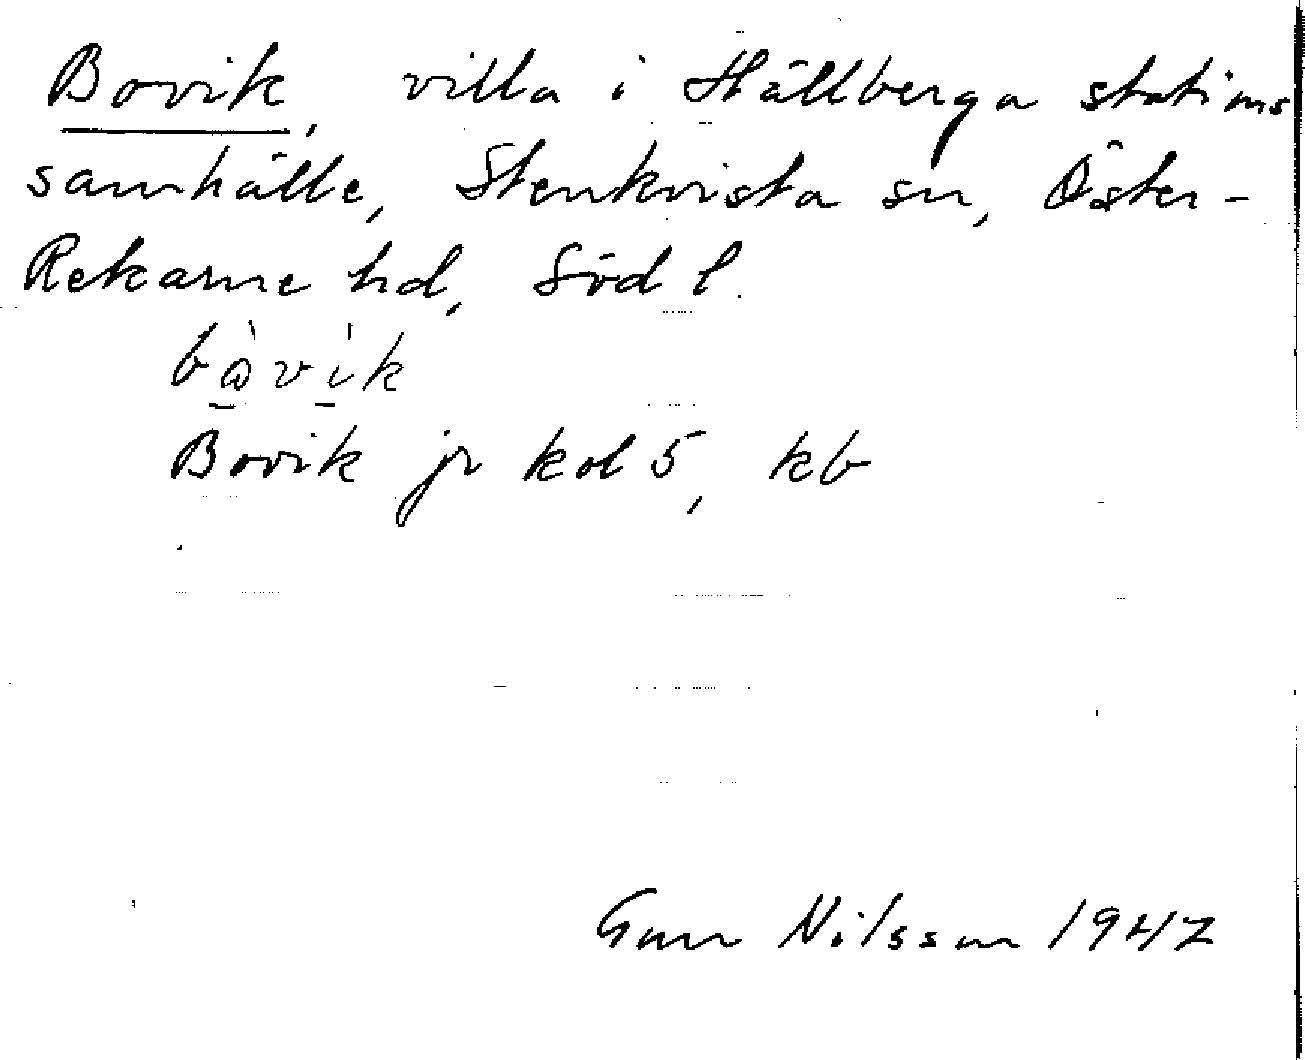 Bovik, villa i Hällberga stations
samhälle, Stenkvista sn, Öster-
Rekarne hd, Söd l.
bὼvi̱k
Bovik jr kol 5, kb
Gun Nilsson 1947